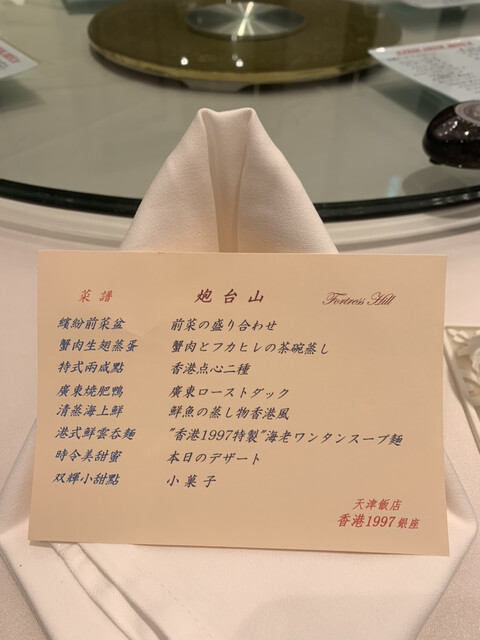 菜譜 炮台山 Fortress Hill
繽紛前菜盆 前菜の盛り合わせ
蟹肉生翅蒸蛋 蟹肉とフカヒレの茶碗蒸し
特式兩咸點 香港点心二種
廣東燒肥鴨 廣東ローストダック
清蒸海上鮮 鮮魚の蒸し物香港風
港式鮮雲吞麵 "香港1997特製"海老ワンタンスープ麺
時令美甜蜜 本日のデザート
双輝小甜點 小菓子
天津飯店
香港1997 銀座